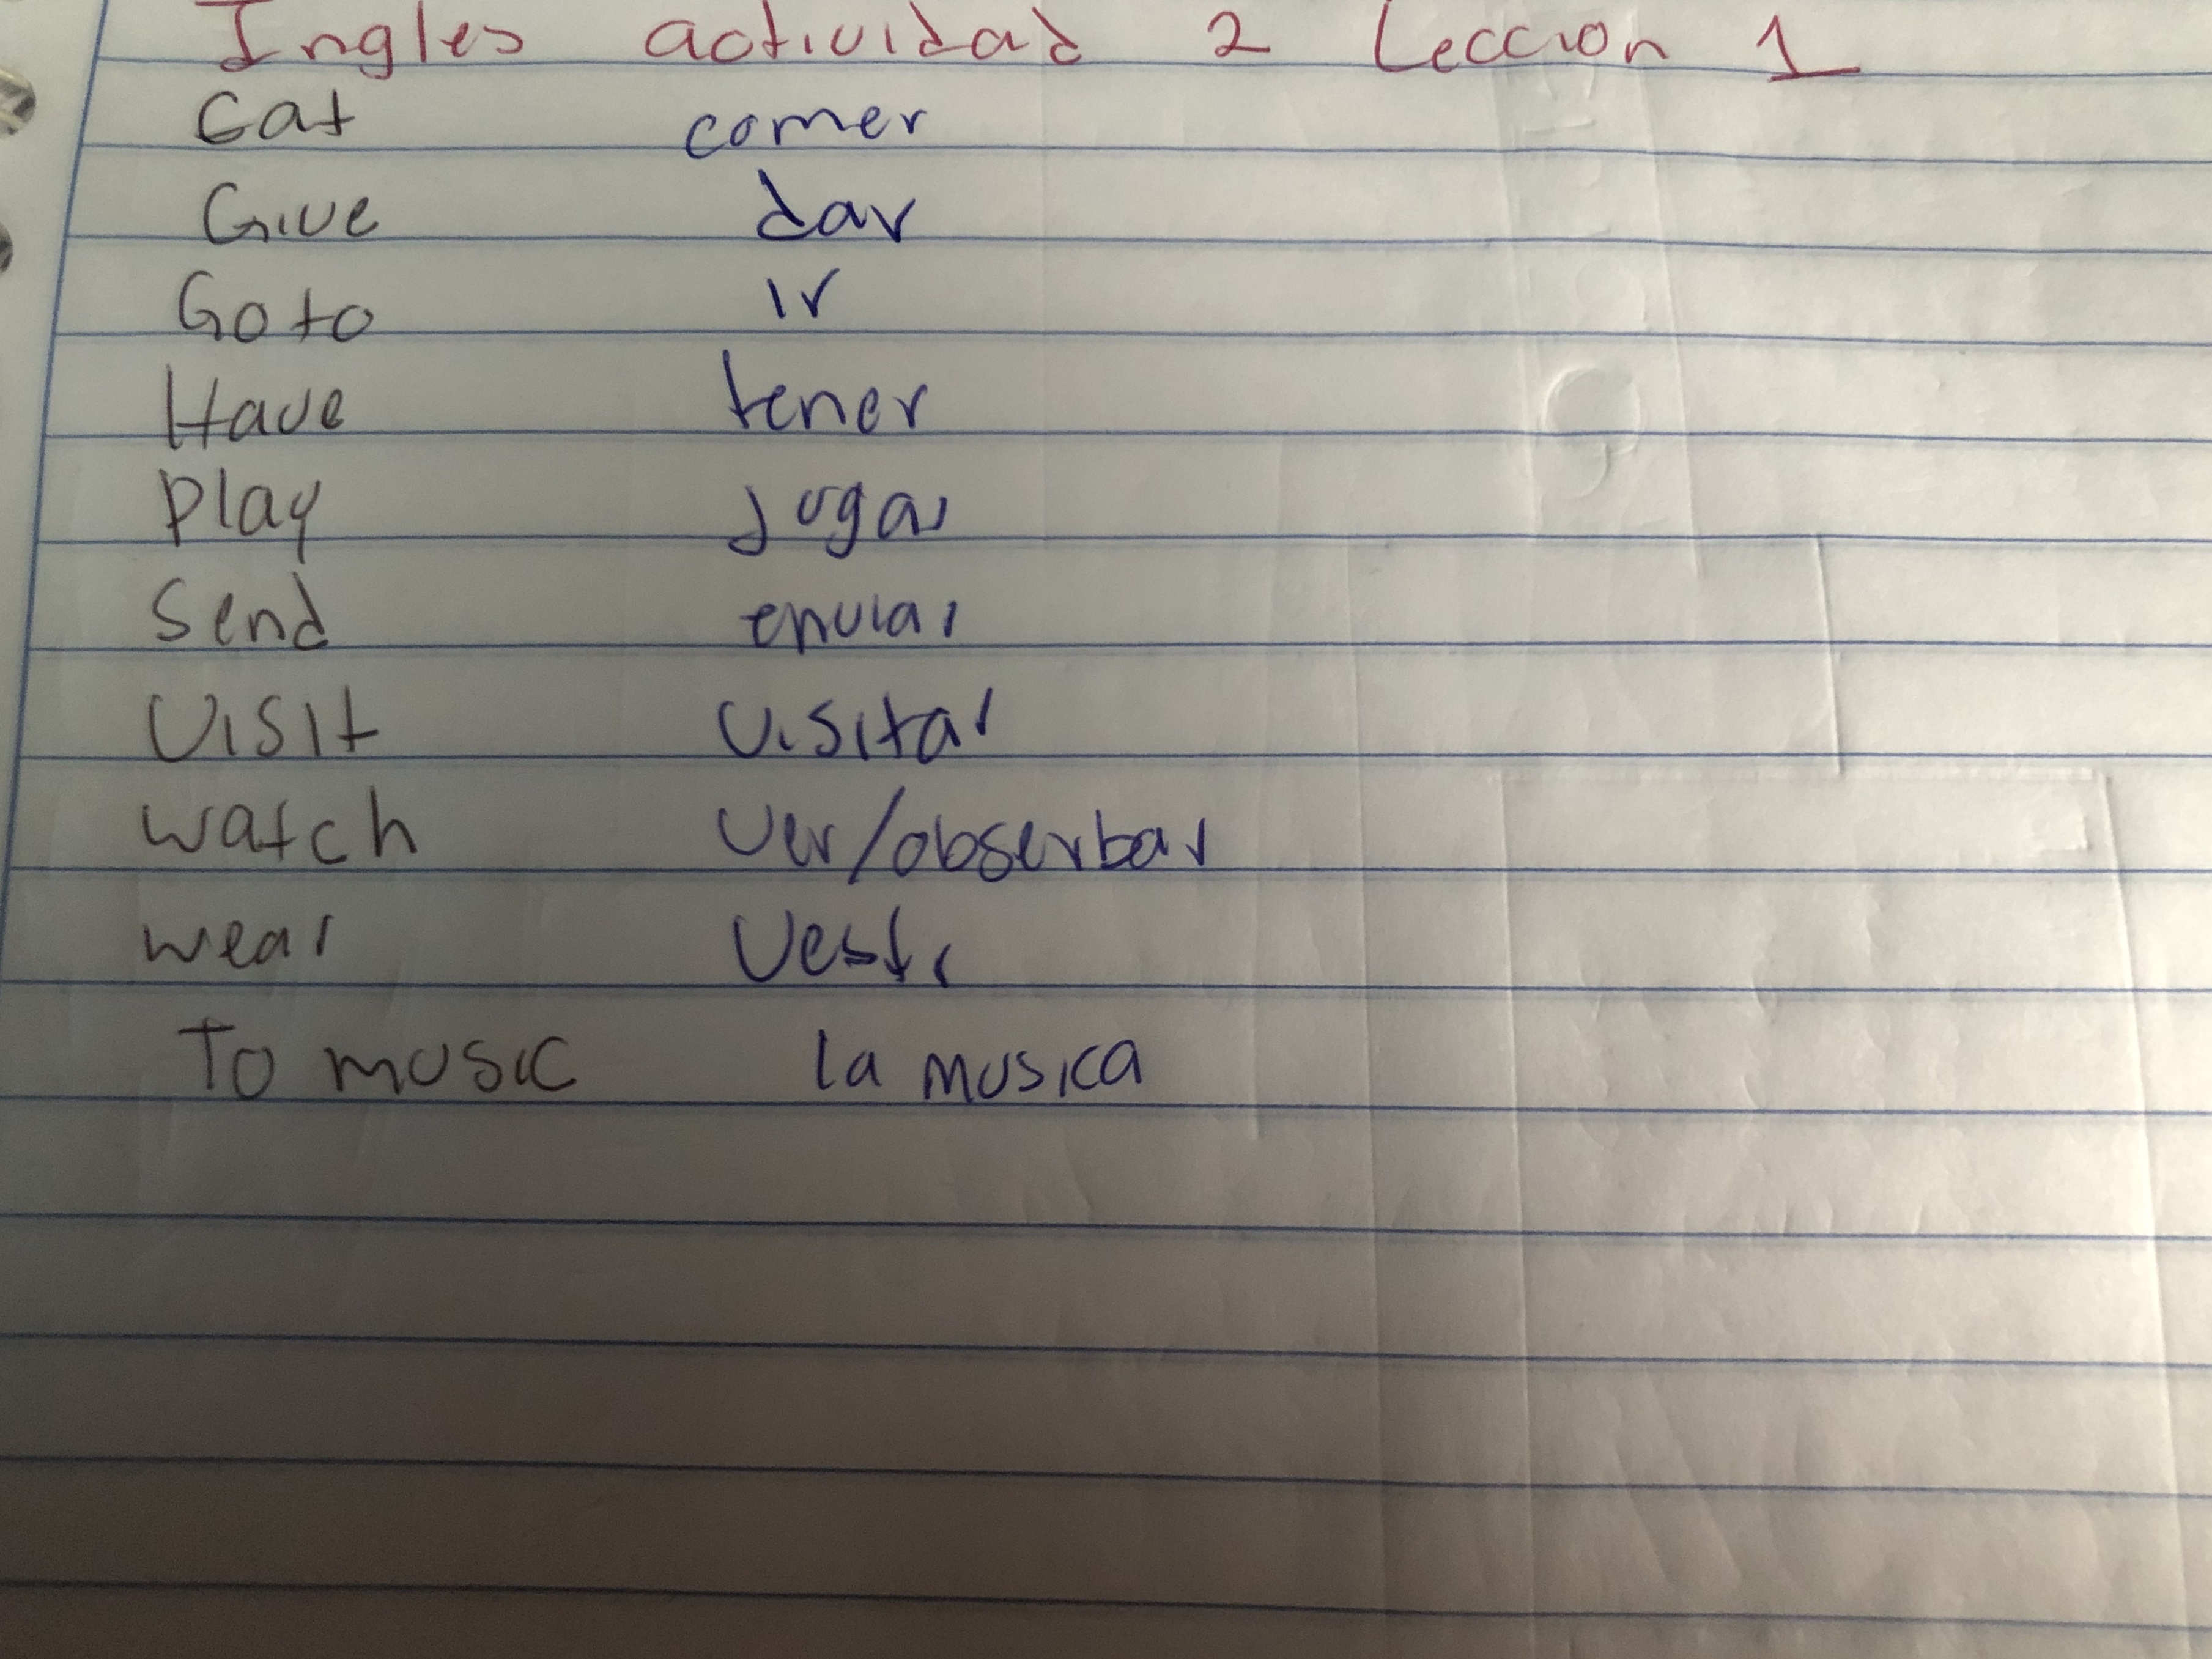 Ingles actividad 2 Leccion 1
Eat comer
Give dar
Go to ir
Have tener
Play jugar
Send enviar
Visit visitar
watch ver/observar
wear Vestr
To music la musica